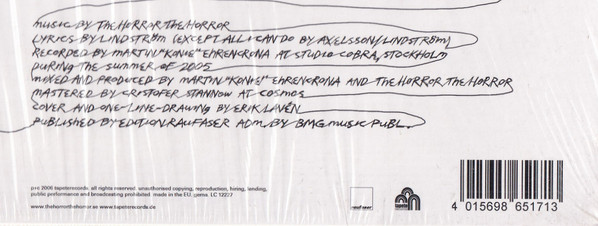 MUSIC BY THE HORROR THE HORROR
LYRICS BY LINDSTRØM (EXCEPT ALL I CAN DO BY AXELSSON/LINDSTRØM)
RECORDED BY MARTIN "KONIE" EHRENCRONA AT STUDIO COBRA, STOCKHOLM
DURING THE SUMMER OF 2005
MIXED AND PRODUCED BY MARTIN "KONIE" EHRENCRONA AND THE HORROR THE HORROR
MASTERED BY CRISTOFER STANNOW AT COSMOS
COVER AND ONE-LINE-DRAWING BY ERIK LAVÉN
PUBLISHED BY EDITION RAUFASER ADM. BY BMG MUSIC PUBL.
p+c 2006 tapeterecords. all rights reserved. unauthorised copying, reproduction, hiring, lending,
public performance and broadcasting prohibited. made in the EU. gema. LC 12237
www.thehorrorthehorror.se www.tapeterecords.de
tapete
4 015698 651713